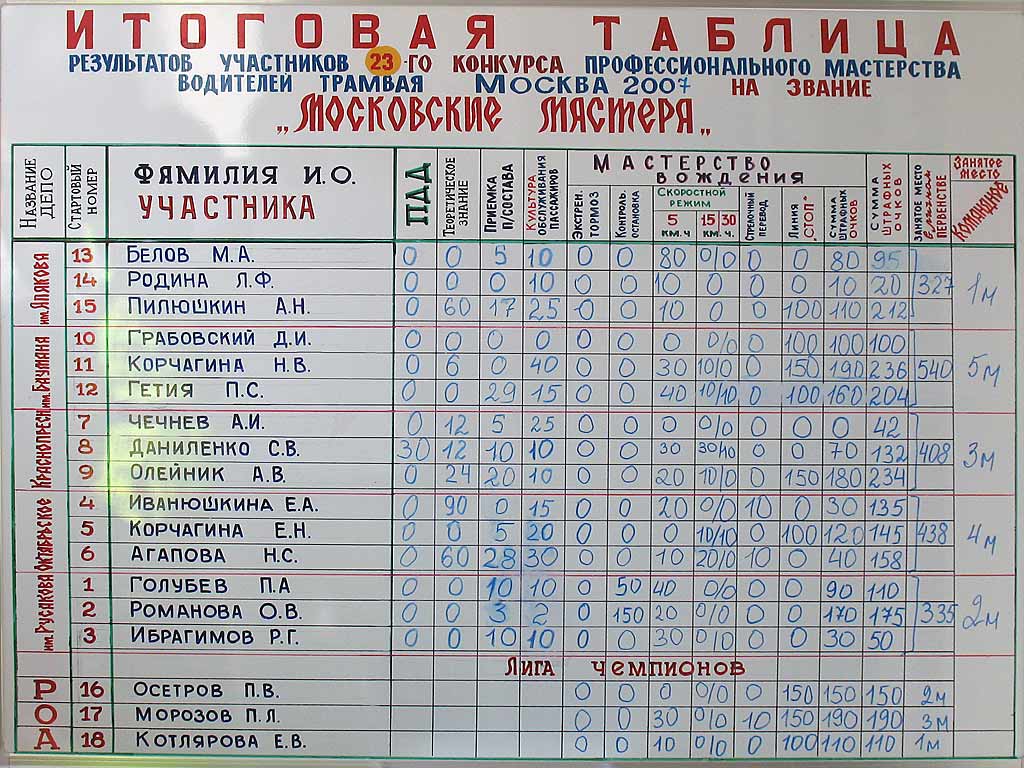 ИТОГОВАЯ ТАБЛИЦА
РЕЗУЛЬТАТОВ УЧАСТНИКОВ 23-ГО КОНКУРСА ПРОФЕССИОНАЛЬНОГО МАСТЕРСТВА
ВОДИТЕЛЕЙ ТРАМВАЯ МОСКВА 2007 НА ЗВАНИЕ
„МОСКОВСКИЕ МАСТЕРА„
НАЗВАНИЕ ДЕПО
СТАРТОВЫЙ НОМЕР
ФАМИЛИЯ И.О. УЧАСТНИКА
ПДД
ТЕОРЕТИЧЕСКОЕ ЗНАНИЕ
ПРИЕМКА П/СОСТАВА
КУЛЬТУРА ОБСЛУЖИВАНИЯ ПАССАЖИРОВ
МАСТЕРСТВО ВОЖДЕНИЯ
ЭКСТРЕН. ТОРМОЗ
КОНТРОЛЬ. ОСТАНОВКА
СКОРОСТНОЙ РЕЖИМ
5 КМ.Ч
15 30 КМ.Ч.
СТРЕЛОЧНЫЙ ПЕРЕВОД
ЛИНИЯ „СТОП"
СУММА ШТРАФНЫХ ОЧКОВ
СУММА ШТРАФНЫХ ОЧКОВ
ЗАНЯТОЕ МЕСТО В ПЕРВЕНСТВЕ
ЗАНЯТОЕ МЕСТО КОМАНДНОЕ
ИМ. АПАКОВА
13 БЕЛОВ М.А. 0 0 5 10 0 0 80 0/0 0 0 80 95
14 РОДИНА Л.Ф. 0 0 0 10 0 0 10 0 0 0 10 20 327 1м
15 ПИЛЮШКИН А.Н. 0 60 17 25 0 0 10 0 0 100 110 212
ИМ. БАУМАНА
10 ГРАБОВСКИЙ Д.И. 0 0 0 0 0 0 0 0/0 0 100 100 100
11 КОРЧАГИНА Н.В. 0 6 0 40 0 0 30 10/0 0 150 190 236 540 5м
12 ГЕТИЯ П.С. 0 0 29 15 0 0 40 10/10 0 100 160 204
КРАСНОПРЕСН.
7 ЧЕЧНЕВ А.И. 0 12 5 25 0 0 0 0/0 0 0 0 42
8 ДАНИЛЕНКО С.В. 30 12 10 10 0 0 30 30/40 0 0 70 132 408 3м
9 ОЛЕЙНИК А.В. 0 24 20 10 0 0 20 10/0 0 150 180 234
ОКТЯБРЬСКОЕ
4 ИВАНЮШКИНА Е.А. 0 90 0 15 0 0 20 0/0 10 0 30 135
5 КОРЧАГИНА Е.Н. 0 0 5 20 0 0 0 10/10 0 100 120 145 438 4м
6 АГАПОВА Н.С. 0 60 28 30 0 0 10 20/0 10 0 40 158
ИМ. РУСАКОВА
1 ГОЛУБЕВ П.А 0 0 10 10 0 50 40 0/0 0 0 90 110
2 РОМАНОВА О.В. 0 0 3 2 0 150 20 0/0 0 0 170 175 335 2м
3 ИБРАГИМОВ Р.Г. 0 0 10 10 0 0 30 0/0 0 0 30 50
ЛИГА ЧЕМПИОНОВ
Р 16 ОСЕТРОВ П.В. 0 0 0 0/0 0 150 150 150 2м
О 17 МОРОЗОВ П.Л. 0 0 30 0/0 10 150 190 190 3м
А 18 КОТЛЯРОВА Е.В. 0 0 10 0/0 0 100 110 110 1м